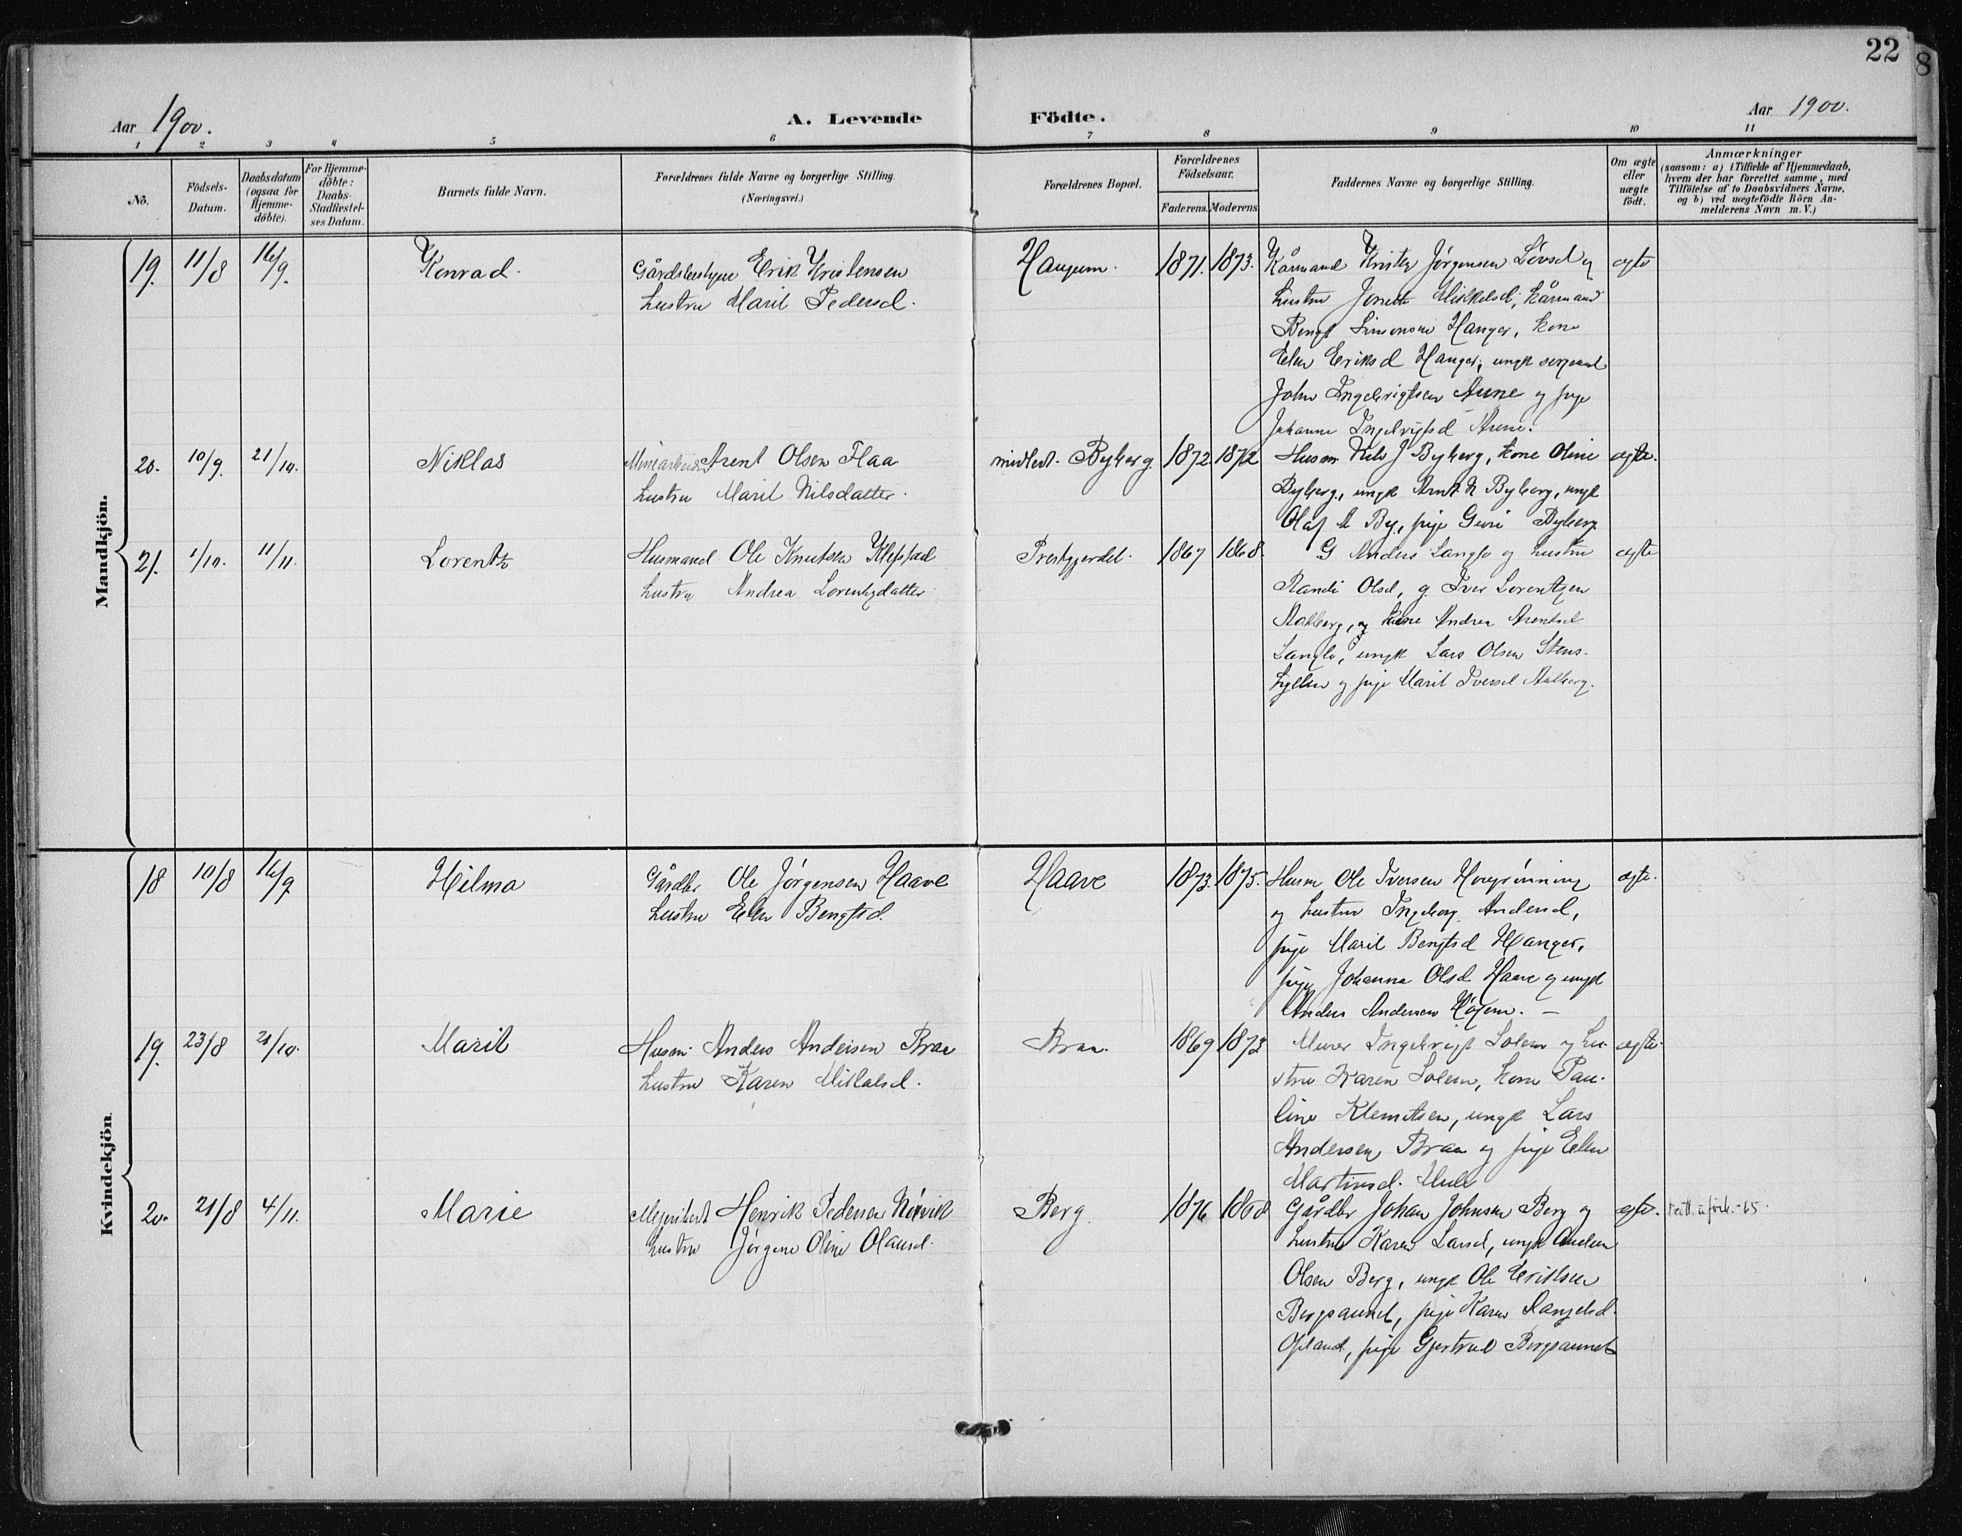 22
8
Aar 1900.
A. Levende Födte.
Aar 1900.
1 2 3 4 5 6 7 8 9 10 11
No.
Födsels-Datum.
Daabsdatum (ogsaa for Hjemme-döbte).
For Hjemme-döbte: Daabs-Stadfæstel-ses Datum.
Barnets fulde Navn.
Forældrenes fulde Navne og borgerlige Stilling.
(Næringsvei.)
Forældrenes Bopæl.
Forældrenes Födselsaar.
Faderens. Moderens.
Faddernes Navne og borgerlige Stilling.
Om ægte eller uægte födt.
Anmærkninger
(saasom: a) i Tilfælde af Hjemmedaab,
hvem der har forrettet samme, med
Tilföielse af to Daabsvidners Navne,
og b) ved uægtefödte Börn An-
melderens Navn m. V.)
Mandkjön.
19. 11/8 16/9. Konrad. Erik Kristensen 1871. 1873. Kårmand Jørgensen Løvsd og ægte
hustru Marit Pedersd.
hustru Mikkelsd, kårmand
Bengt Simonsen Hanger, kone
Elen Eriksd Hanger, ungk
John Ingebrigtsen Aune og pige
Johanne Ingebrigtsd Aune.
20. 10/9. 21/10. Niklas Minearbeider Arent Olsen Flaa midlert. Byberg. 1872. 1872 Husm Nils J Byberg, kone Oline ægte.
hustru Marit Nilsdatter.
Byberg, ungk Arnt N Byberg, ungk
Olaf A By, pige Guri Byberg
21. 1/10. 11/11. Lorentz Husmand Ole Knutsen Kleffad 1867 1868. G Anders Langlo og hustru ægte
hustru Andrea Lorentzdatter
Randi Olsd, g. Iver Lorentzen
Aalberg, og kone Andrea Arentsd
Langlo, ungk Lars Olsen Stens-
hyllen og pige Marit Iversd Aalberg.
Kvindekjön.
18 10/8 16/9 Hilma Gårdbr Ole Jørgensen Haave Haave 1873. 1875. Husm Ole Iversen ægte.
hustru Elen Bengtsd.
og hustru Ingeborg Andersd,
pige Marit Bengtsd Hanger,
pige Johanna Olsd Haave og ungk
Anders Andersen
19. 23/8 21/10. Marit Husm. Anders Andersen Braa Braa. 1869 1873 Murer Ingebrigt Solem og hu- ægte.
hustru Karen Mikkelsd.
stru Karen Solem, kone Pau-
line Klemetsen, ungk Lars
Andersen Braa og pige Elen
Martinsd.
20. 21/8 4/11. Marie Henrik Pedersen Nørvik Berg. 1876 1868 Gårdbr Johan Johnsen Berg og ægte.
hustru Jørgine Oline Olausd.
hustru Karen Larsd, ungk
Olsen Berg, ungk Ole Eriksen
Bergsaunet, pige Karen
Opland, pige Gjertrud Bergsaunet